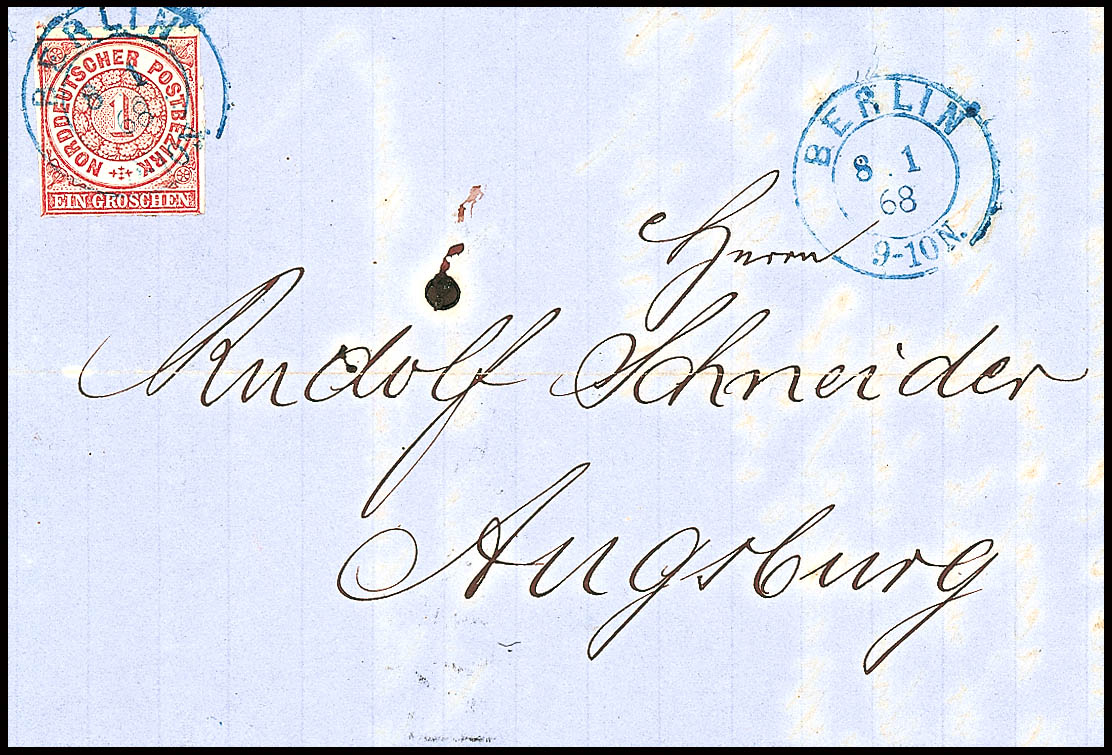 BERLIN
8 1
68
NORDDEUTSCHER POSTBEZIRK
1
EIN GROSCHEN
BERLIN
8.1
68
9-10N.
Herrn
Rudolf Schneider
Augsburg